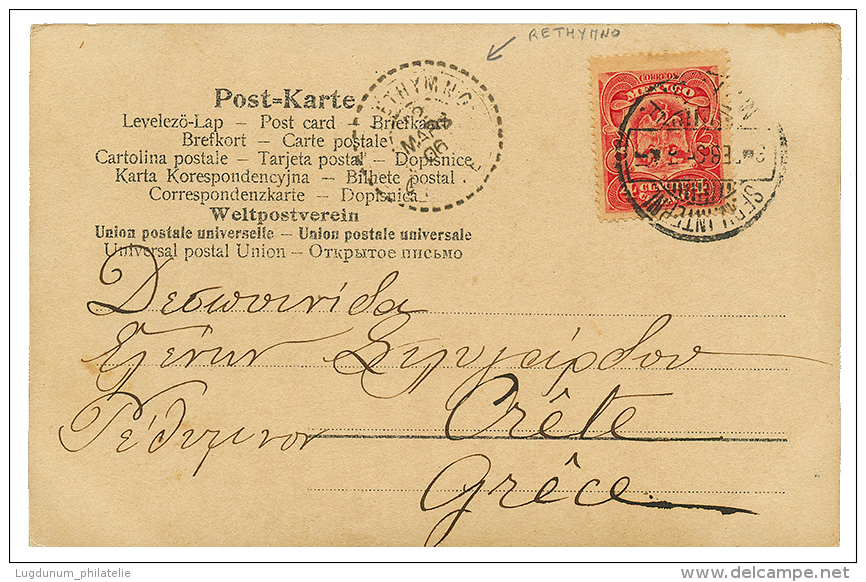 RETHYMNO
CORREOS
MEXICO
RETHYMNO
MAR
06
Post=Karte
Levelezö-Lap – Post card – Briefkaart
Brefkort – Carte postale
Cartolina postale – Tarjeta postal – Dopisnice
Karta Korespondencyjna – Bilhete postal
Correspondenzkarte – Dopisnica
Weltpostverein
Union postale universelle – Union postale universale
Universal postal Union – Открытое письмо
Δεσποινίδα
Ἑλένην
Ρέθυμνον Crête
Grèce
Lugdunum_philatelie
delcampe.net